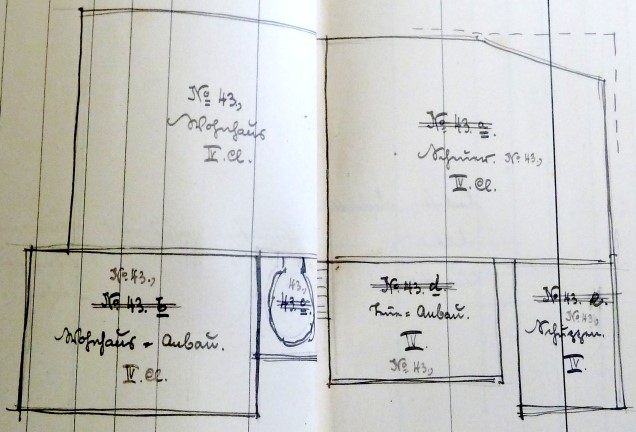 No 43,
Wohnhaus
IV. Cl.
No 43. a.
Scheuer. No 43,
IV. Cl.
No 43,
No 43. b
Wohnhaus - Anbau.
IV. Cl.
43,
43. c.
No 43. d
Anbau.
IV
No 43,
No 43. e.
No 43,
Schuppen.
IV.